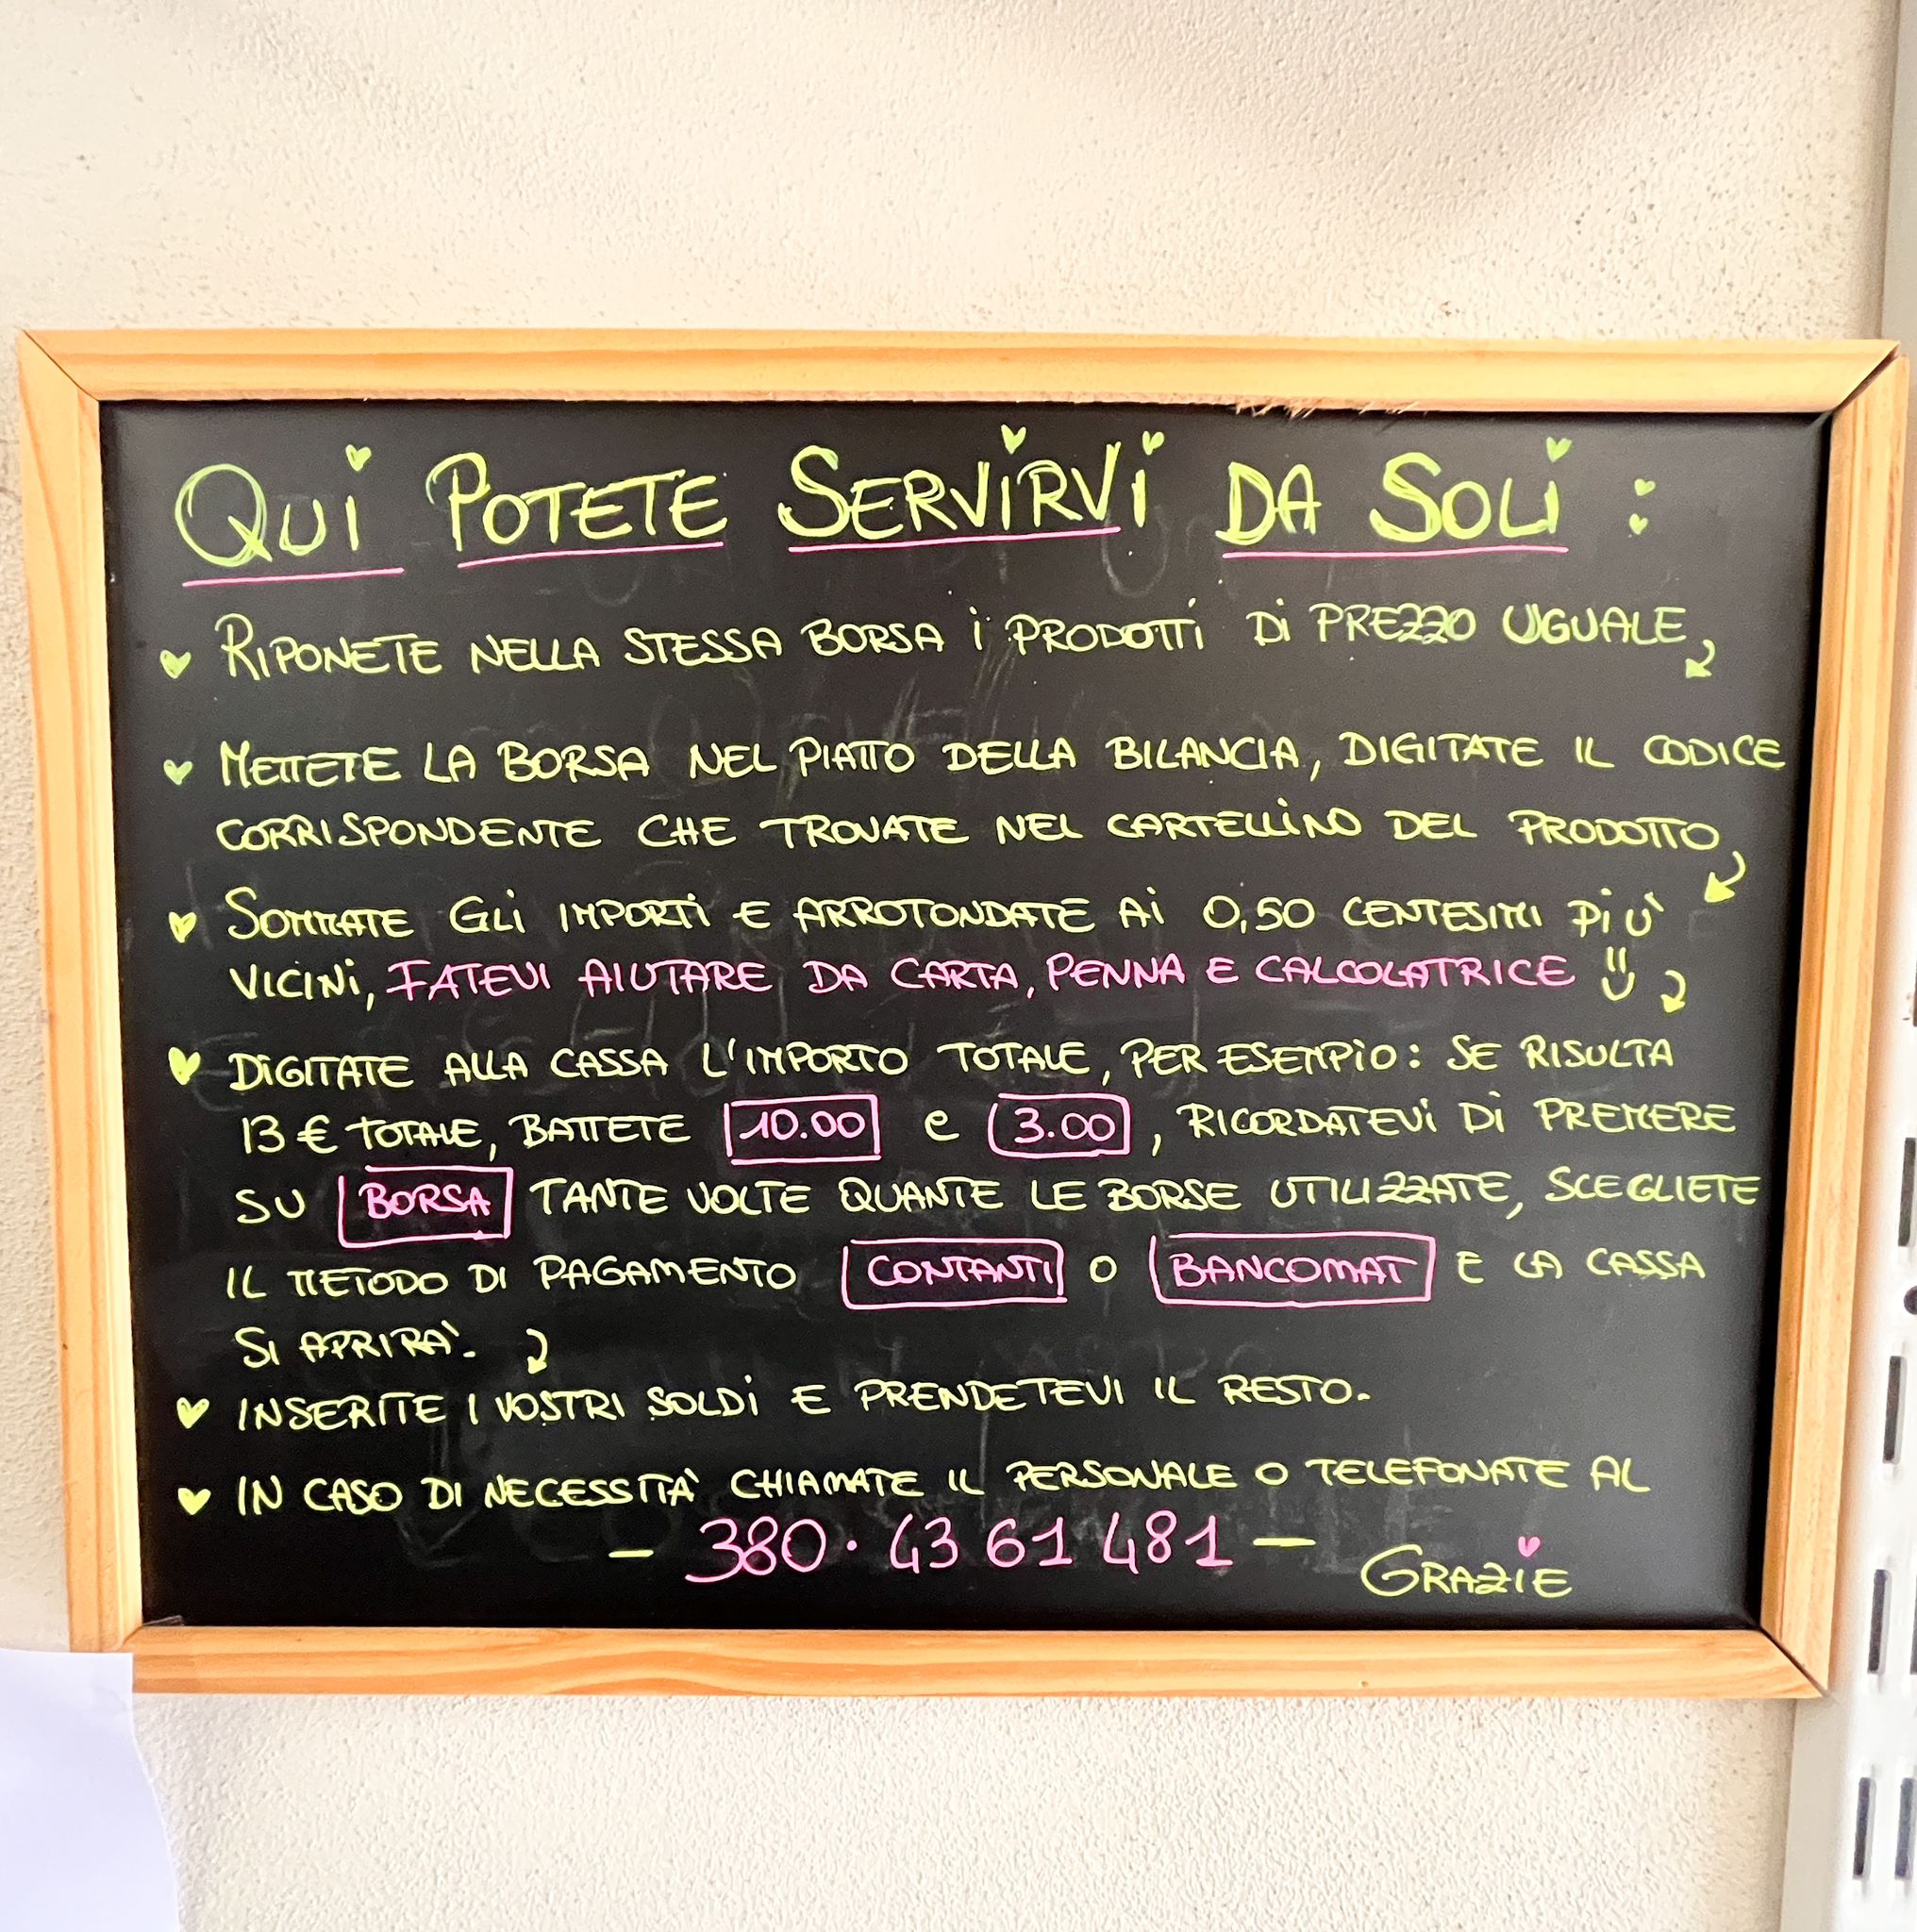 QUI POTETE SERVIRVI DA SOLI :
RIPONETE NELLA STESSA BORSA I PRODOTTI DI PREZZO UGUALE
METTETE LA BORSA NEL PIATTO DELLA BILANCIA, DIGITATE IL CODICE
CORRISPONDENTE CHE TROVATE NEL CARTELLINO DEL PRODOTTO
SOMMATE GLI IMPORTI E ARROTONDATE AI 0,50 CENTESIMI PIÙ
VICINI, FATEVI AIUTARE DA CARTA, PENNA E CALCOLATRICE
DIGITATE ALLA CASSA L'IMPORTO TOTALE, PER ESEMPIO: SE RISULTA
13 € TOTALE, BATTETE 10.00 e 3.00, RICORDATEVI DI PREMERE
SU BORSA TANTE VOLTE QUANTE LE BORSE UTILIZZATE, SCEGLIETE
IL METODO DI PAGAMENTO CONTANTI O BANCOMAT E LA CASSA
SI APRIRÀ.
INSERITE I VOSTRI SOLDI E PRENDETEVI IL RESTO.
IN CASO DI NECESSITÀ CHIAMATE IL PERSONALE O TELEFONATE AL
- 380 · 43 61 481 -
GRAZIE